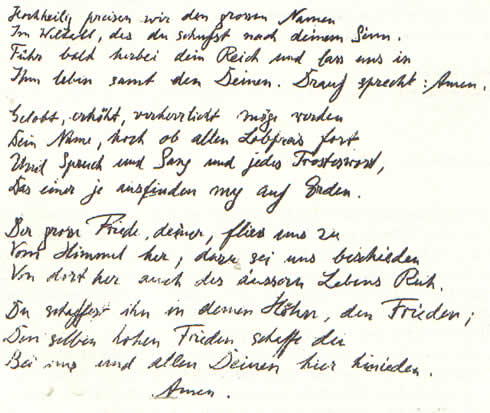 Hochheilig preisen wir den grossen Namen
Im Weltall, das du schufst nach deinem Sinn.
Führ bald herbei dein Reich und lass uns in
Ihm leben samt den Deinen. Drauf sprecht: Amen.
Gelobt, erhöht, verherrlicht möge werden
Dein Name, hoch ob allen Lobpreis fort
Und Spruch und Sang und jedes Trosteswort,
Das einer je ausfinden mag auf Erden.
Der grosse Friede, deiner, fliess uns zu
Vom Himmel her, dazu sei uns beschieden
Von dort her auch des äussern Lebens Ruh.
Du schaffest ihn in deinen Höhn, den Frieden;
Den selben hohen Frieden schaffe du
Bei uns und allen Deinen hier hinieden.
Amen.